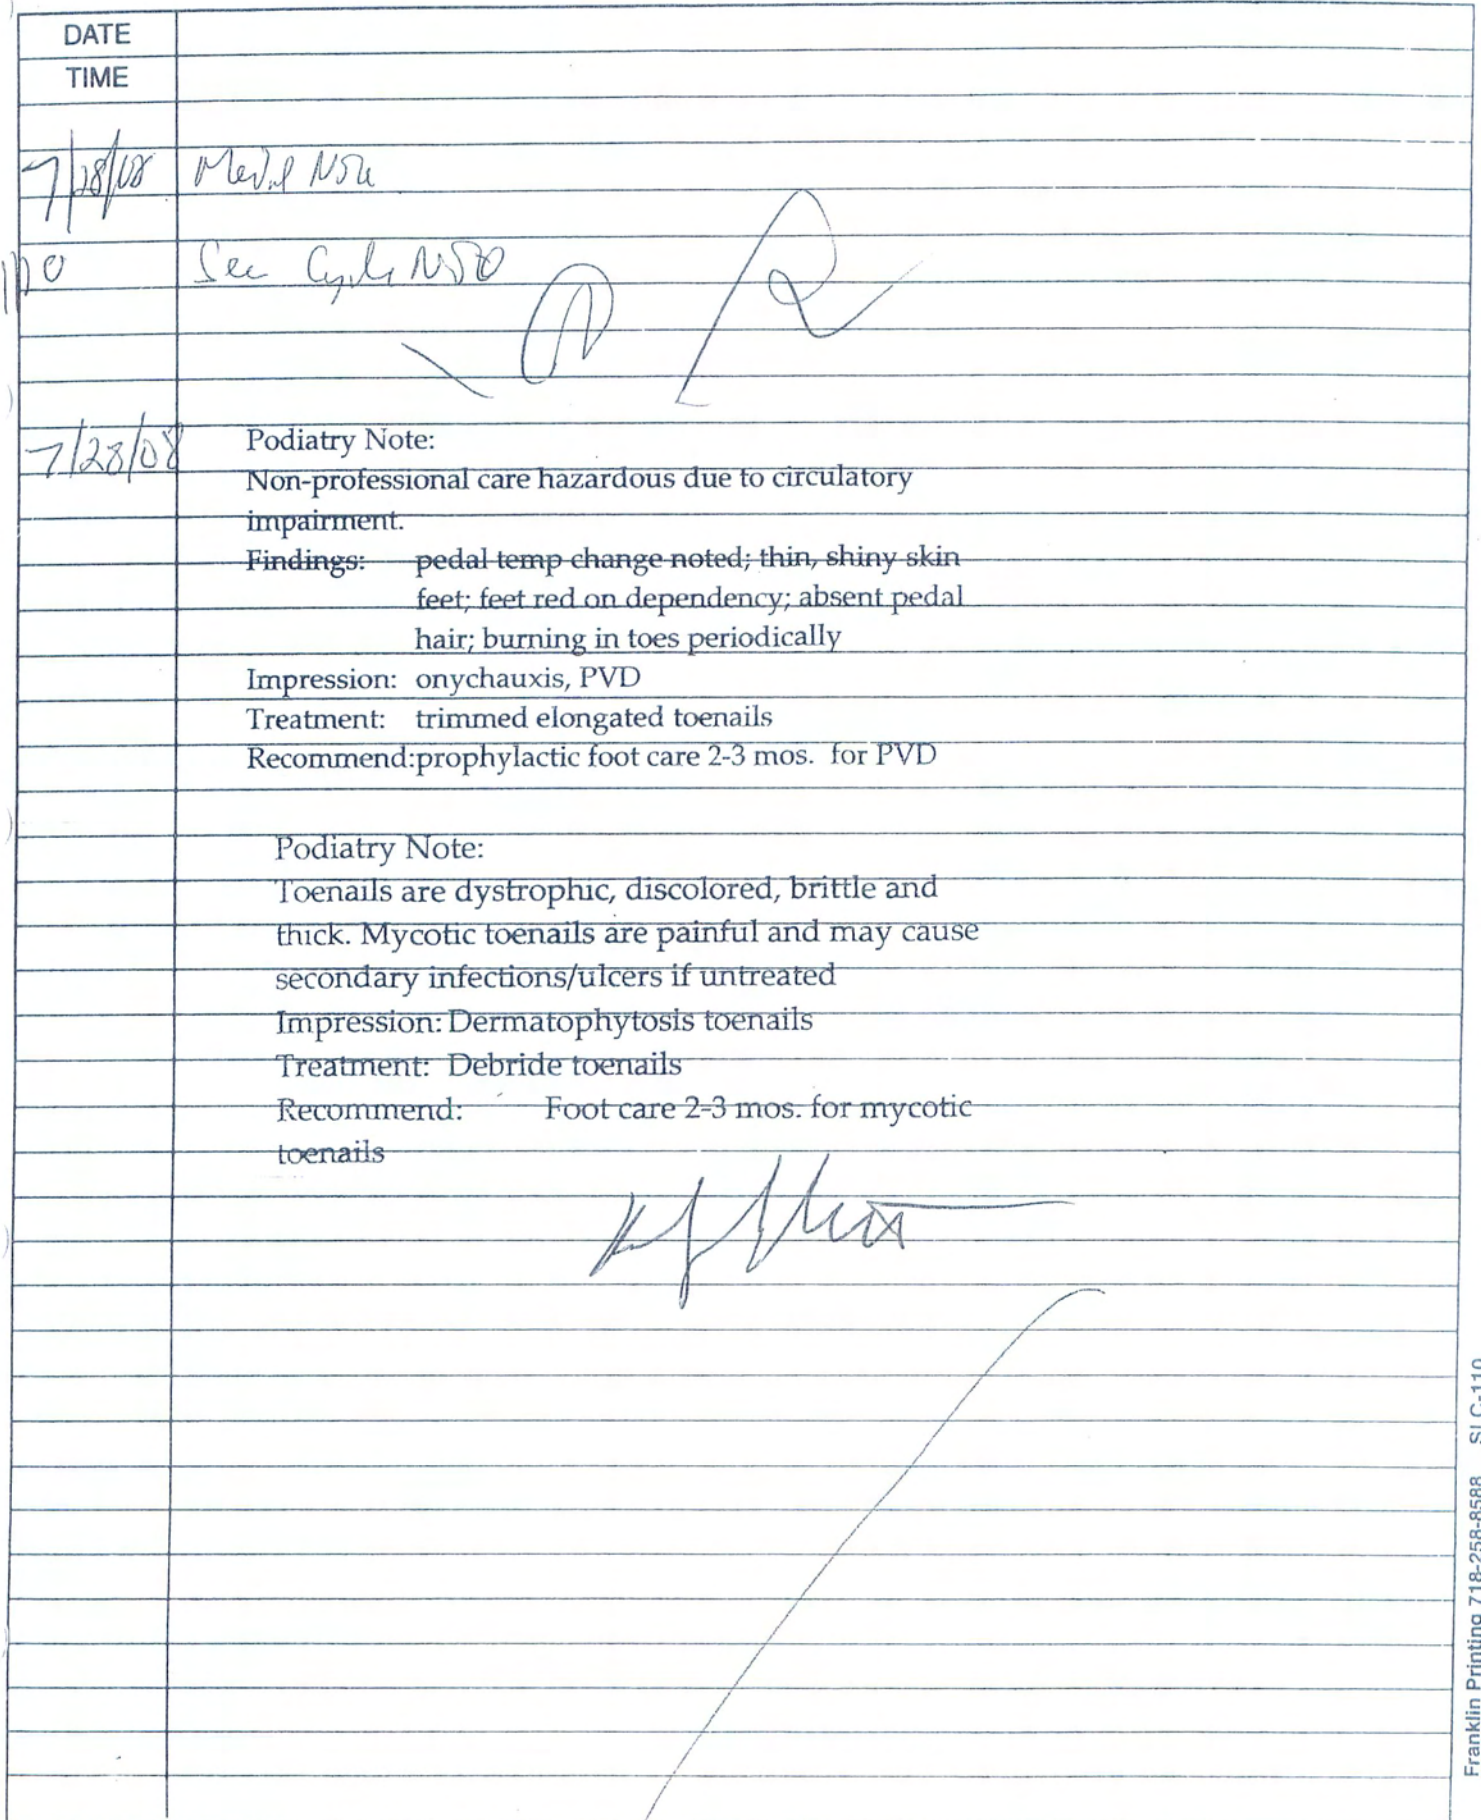 DATE
TIME
7/28/08 Medical Note
See Cycle Note
7/28/08 Podiatry Note:
Non-professional care hazardous due to circulatory
impairment.
Findings: pedal temp change noted; thin, shiny skin
feet; feet red on dependency; absent pedal
hair; burning in toes periodically
Impression: onychauxis, PVD
Treatment: trimmed elongated toenails
Recommend:prophylactic foot care 2-3 mos. for PVD
Podiatry Note:
Toenails are dystrophic, discolored, brittle and
thick. Mycotic toenails are painful and may cause
secondary infections/ulcers if untreated
Impression: Dermatophytosis toenails
Treatment: Debride toenails
Recommend: Foot care 2-3 mos. for mycotic
toenails
Franklin Printing 718-258-8588 SLC-110